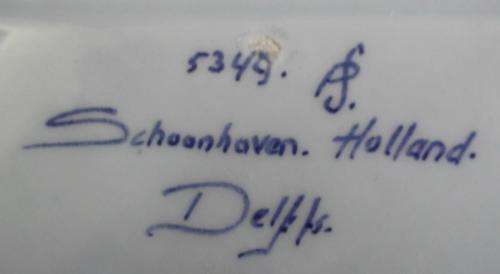 5349.
Schoonhoven. Holland.
Delffs.